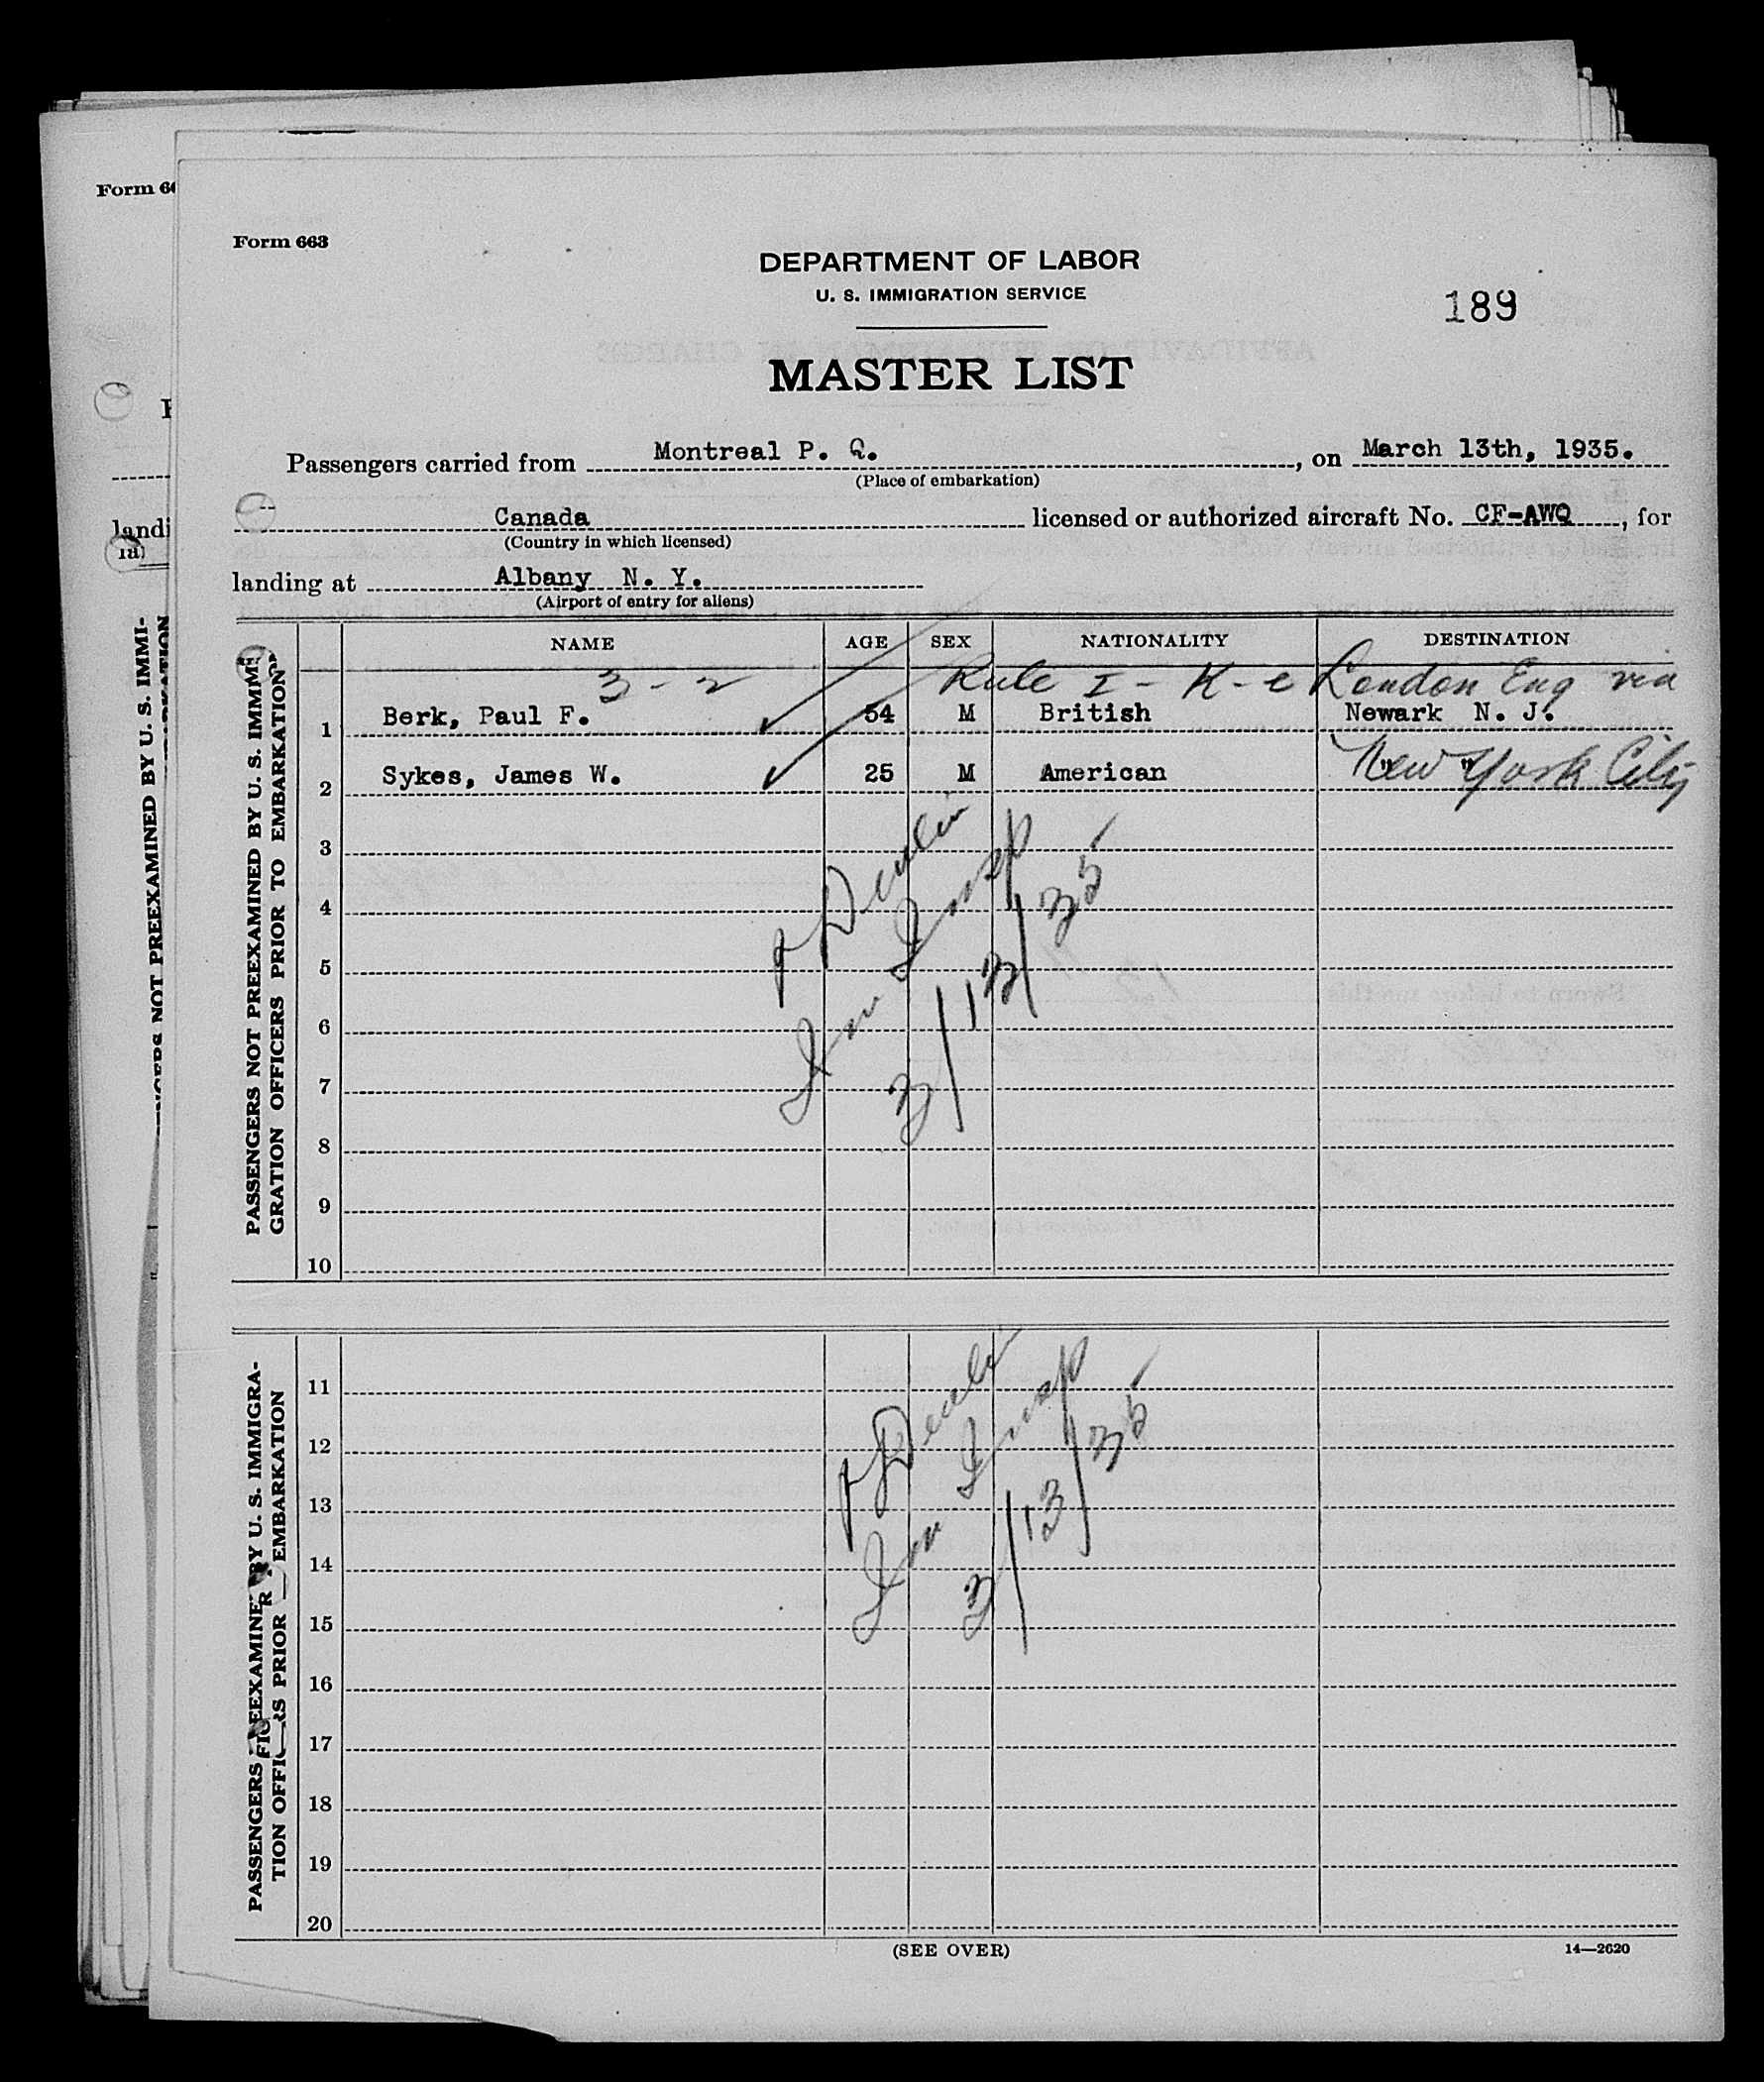 Form 66
Form 663
DEPARTMENT OF LABOR
U. S. IMMIGRATION SERVICE
189
MASTER LIST
Passengers carried from Montreal P. Q., on March 13th, 1935.
(Place of embarkation)
Canada licensed or authorized aircraft No. CF-AWQ, for
(Country in which licensed)
landing at Albany N. Y.
(Airport of entry for aliens)
NAME AGE SEX NATIONALITY DESTINATION
3 - 2 Rule I - K - e London Eng via
1 Berk, Paul F. 54 M British Newark N. J.
2 Sykes, James W. 25 M American " "
New York City
3
4
5
6
7
8
9
10
Devlin
Imm Insp
3/13/35
PASSENGERS NOT PREEXAMINED BY U. S. IMMI-
GRATION OFFICERS PRIOR TO EMBARKATION
11
12
13
14
15
16
17
18
19
20
Devlin
Imm Insp
3/13/35
PASSENGERS PREEXAMINED BY U. S. IMMIGRA-
TION OFFICERS PRIOR TO EMBARKATION
(SEE OVER)
14—2620
landi
NOT PREEXAMINED BY U. S. IMMI-